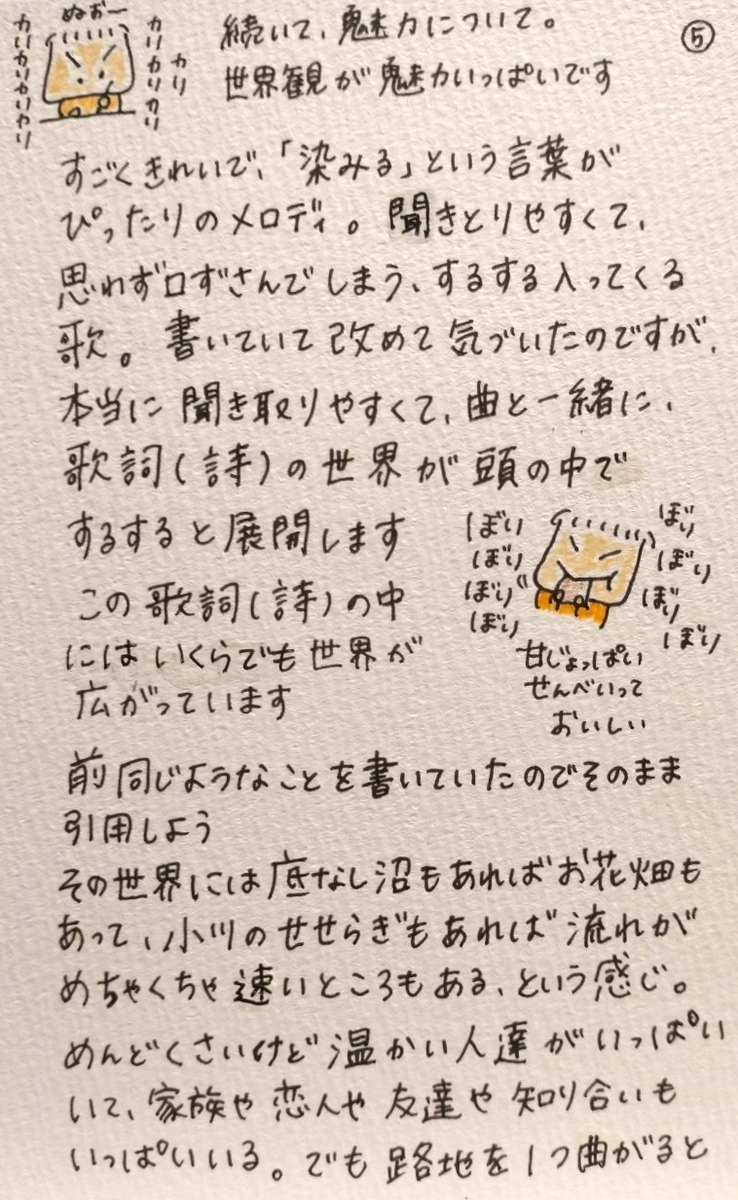 ぬおー
カリカリカリカリ
カリカリカリ
カリ
⑤
続いて、魅力について。
世界観が魅力いっぱいです
すごくきれいで、「染みる」という言葉が
ぴったりのメロディ。聞きとりやすくて、
思わず口ずさんでしまう、するする入ってくる
歌。書いていて改めて気づいたのですが、
本当に聞き取りやすくて、曲と一緒に、
歌詞(詩)の世界が頭の中で
するすると展開します
ぼり
ぼり
ぼり
ぼり
ぼり
ぼり
ぼり
ぼり
甘じょっぱい
せんべいって
おいしい
この歌詞(詩)の中
にはいくらでも世界が
広がっています
前同じようなことを書いていたのでそのまま
引用しよう
その世界には底なし沼もあればお花畑も
あって、小川のせせらぎもあれば流れが
めちゃくちゃ速いところもある、という感じ。
めんどくさいけど温かい人達がいっぱい
いて、家族や恋人や友達や知り合いも
いっぱいいる。でも路地を1つ曲がると